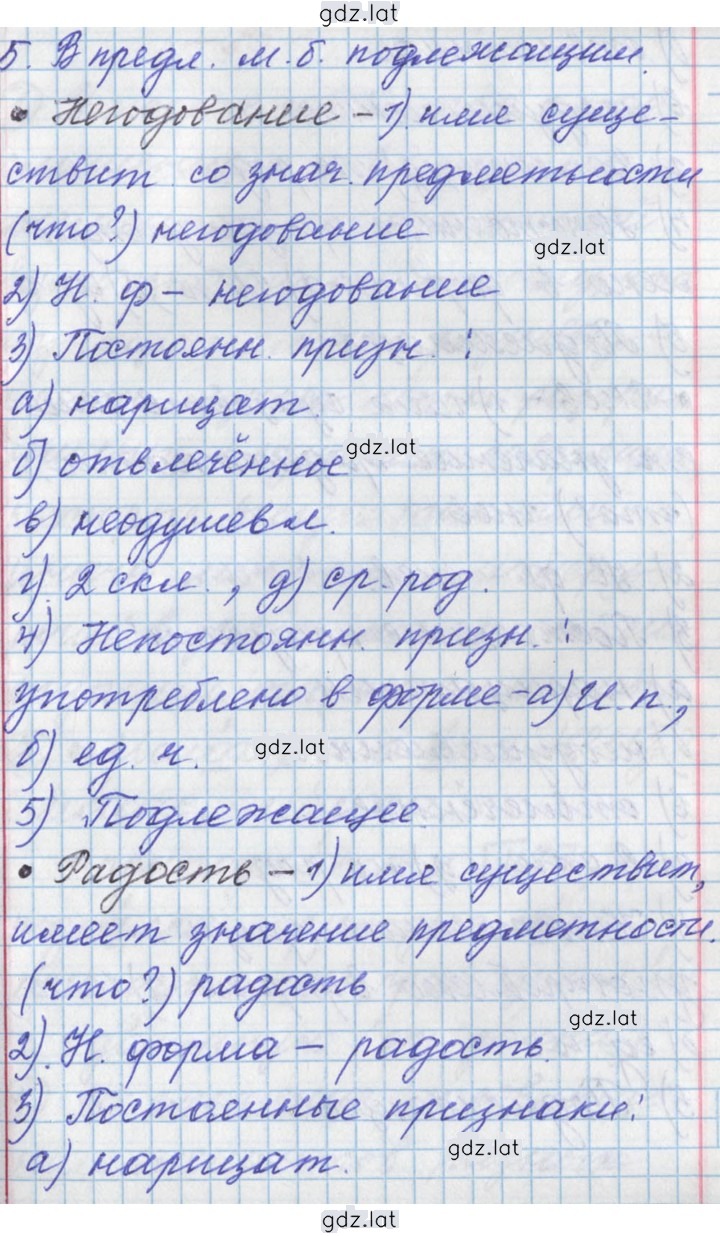 gdz.lat
5. В предл. м.б. подлежащим.
• Негодование – 1) имя суще-
ствит. со знач. предметности
(что?) негодование
gdz.lat
2) Н. ф – негодование
3) Постоянн. призн. :
а) нарицат.
gdz.lat
б) отвлечённое
в) неодушевл.
г) 2 скл. , д) ср. род.
4) Непостоянн. призн. :
употреблено в форме – а) И. п.,
б) ед. ч.
gdz.lat
5) Подлежащее.
• Радость – 1) имя существит,
имеет значение предметности.
(что?) радость
gdz.lat
2). Н. форма – радость.
3) Постоянные признаки:
а) нарицат.
gdz.lat
gdz.lat